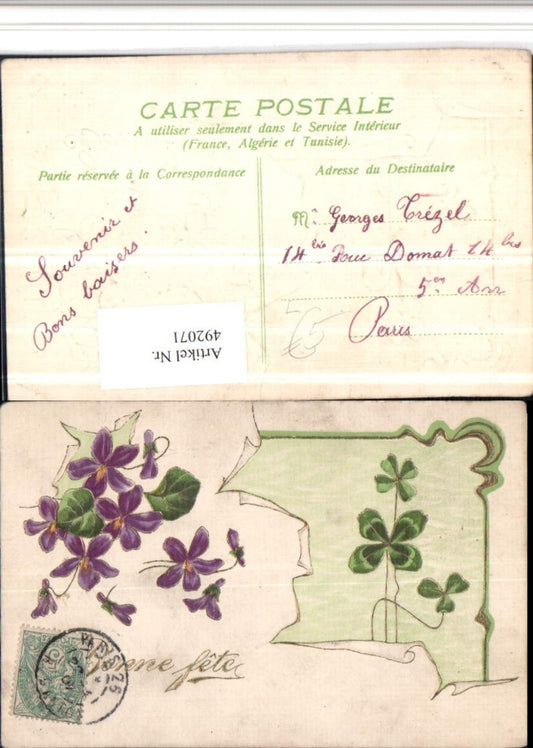 CARTE POSTALE
A utiliser seulement dans le Service Intérieur
(France, Algérie et Tunisie).
Partie réservée à la Correspondance
Adresse du Destinataire
Souvenir et
Bons baisers.
Mr. Georges Trézel
14 bis Rue Domat 14 bis
5en Arr
Paris
Artikel Nr.
492071
Bonne fête
PARIS 25